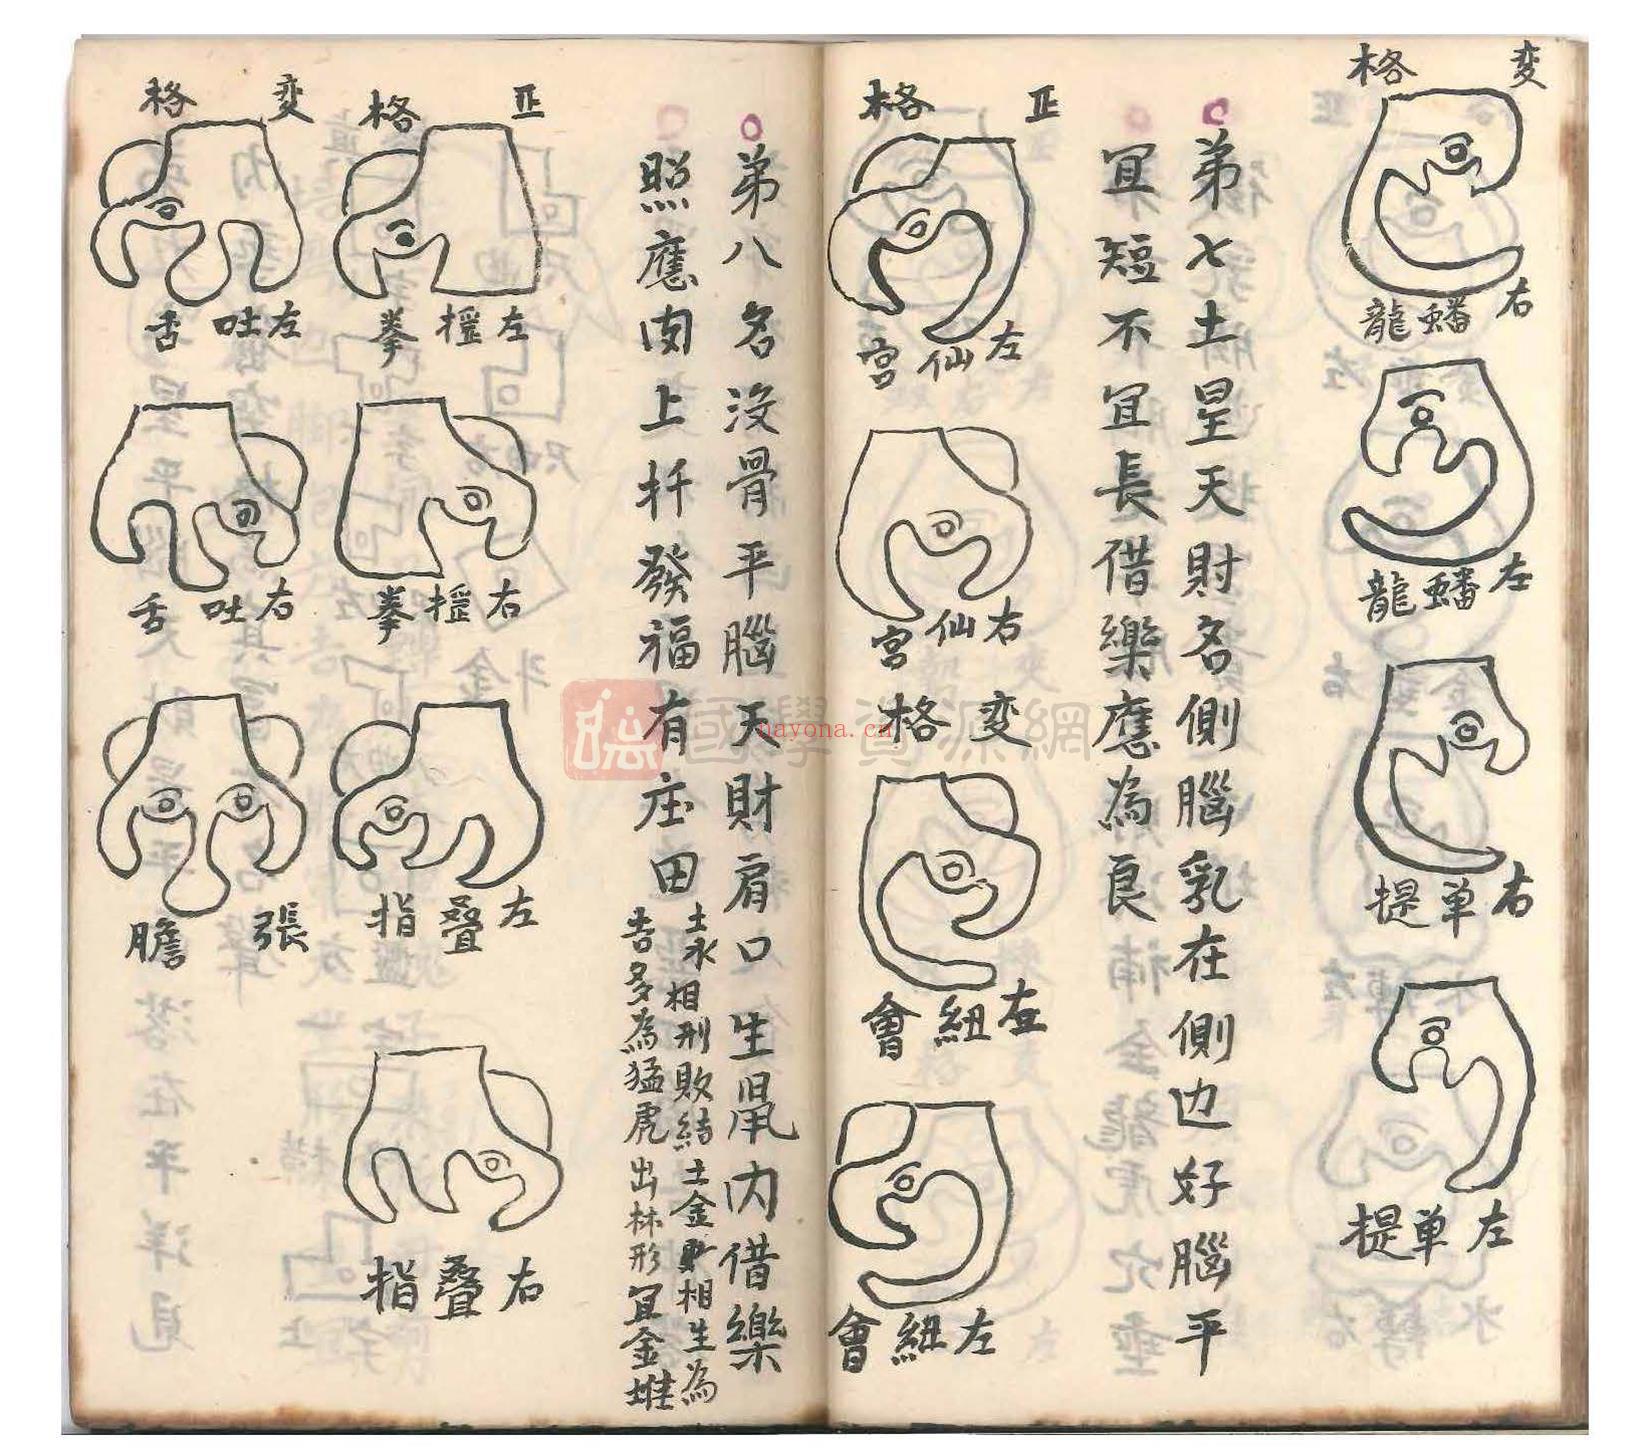 変格
右蟠龍
左蟠龍
右单提
左单提
弟七土星天財名側腦乳在側边好腦平
冝短不冝長借樂應為良
正格
左仙宫
右仙宫
変格
紐會
左紐會
弟八名没骨平腦天財肩口生鼡内借樂
照應肉上扦發福有庄田
土永相刑敗結土金相生為
吉多為猛虎出林形冝金堆
正格
左握拳
右握拳
左叠指
右叠指
変格
左吐舌
右吐舌
張膽
國學資源網
nayona.cn